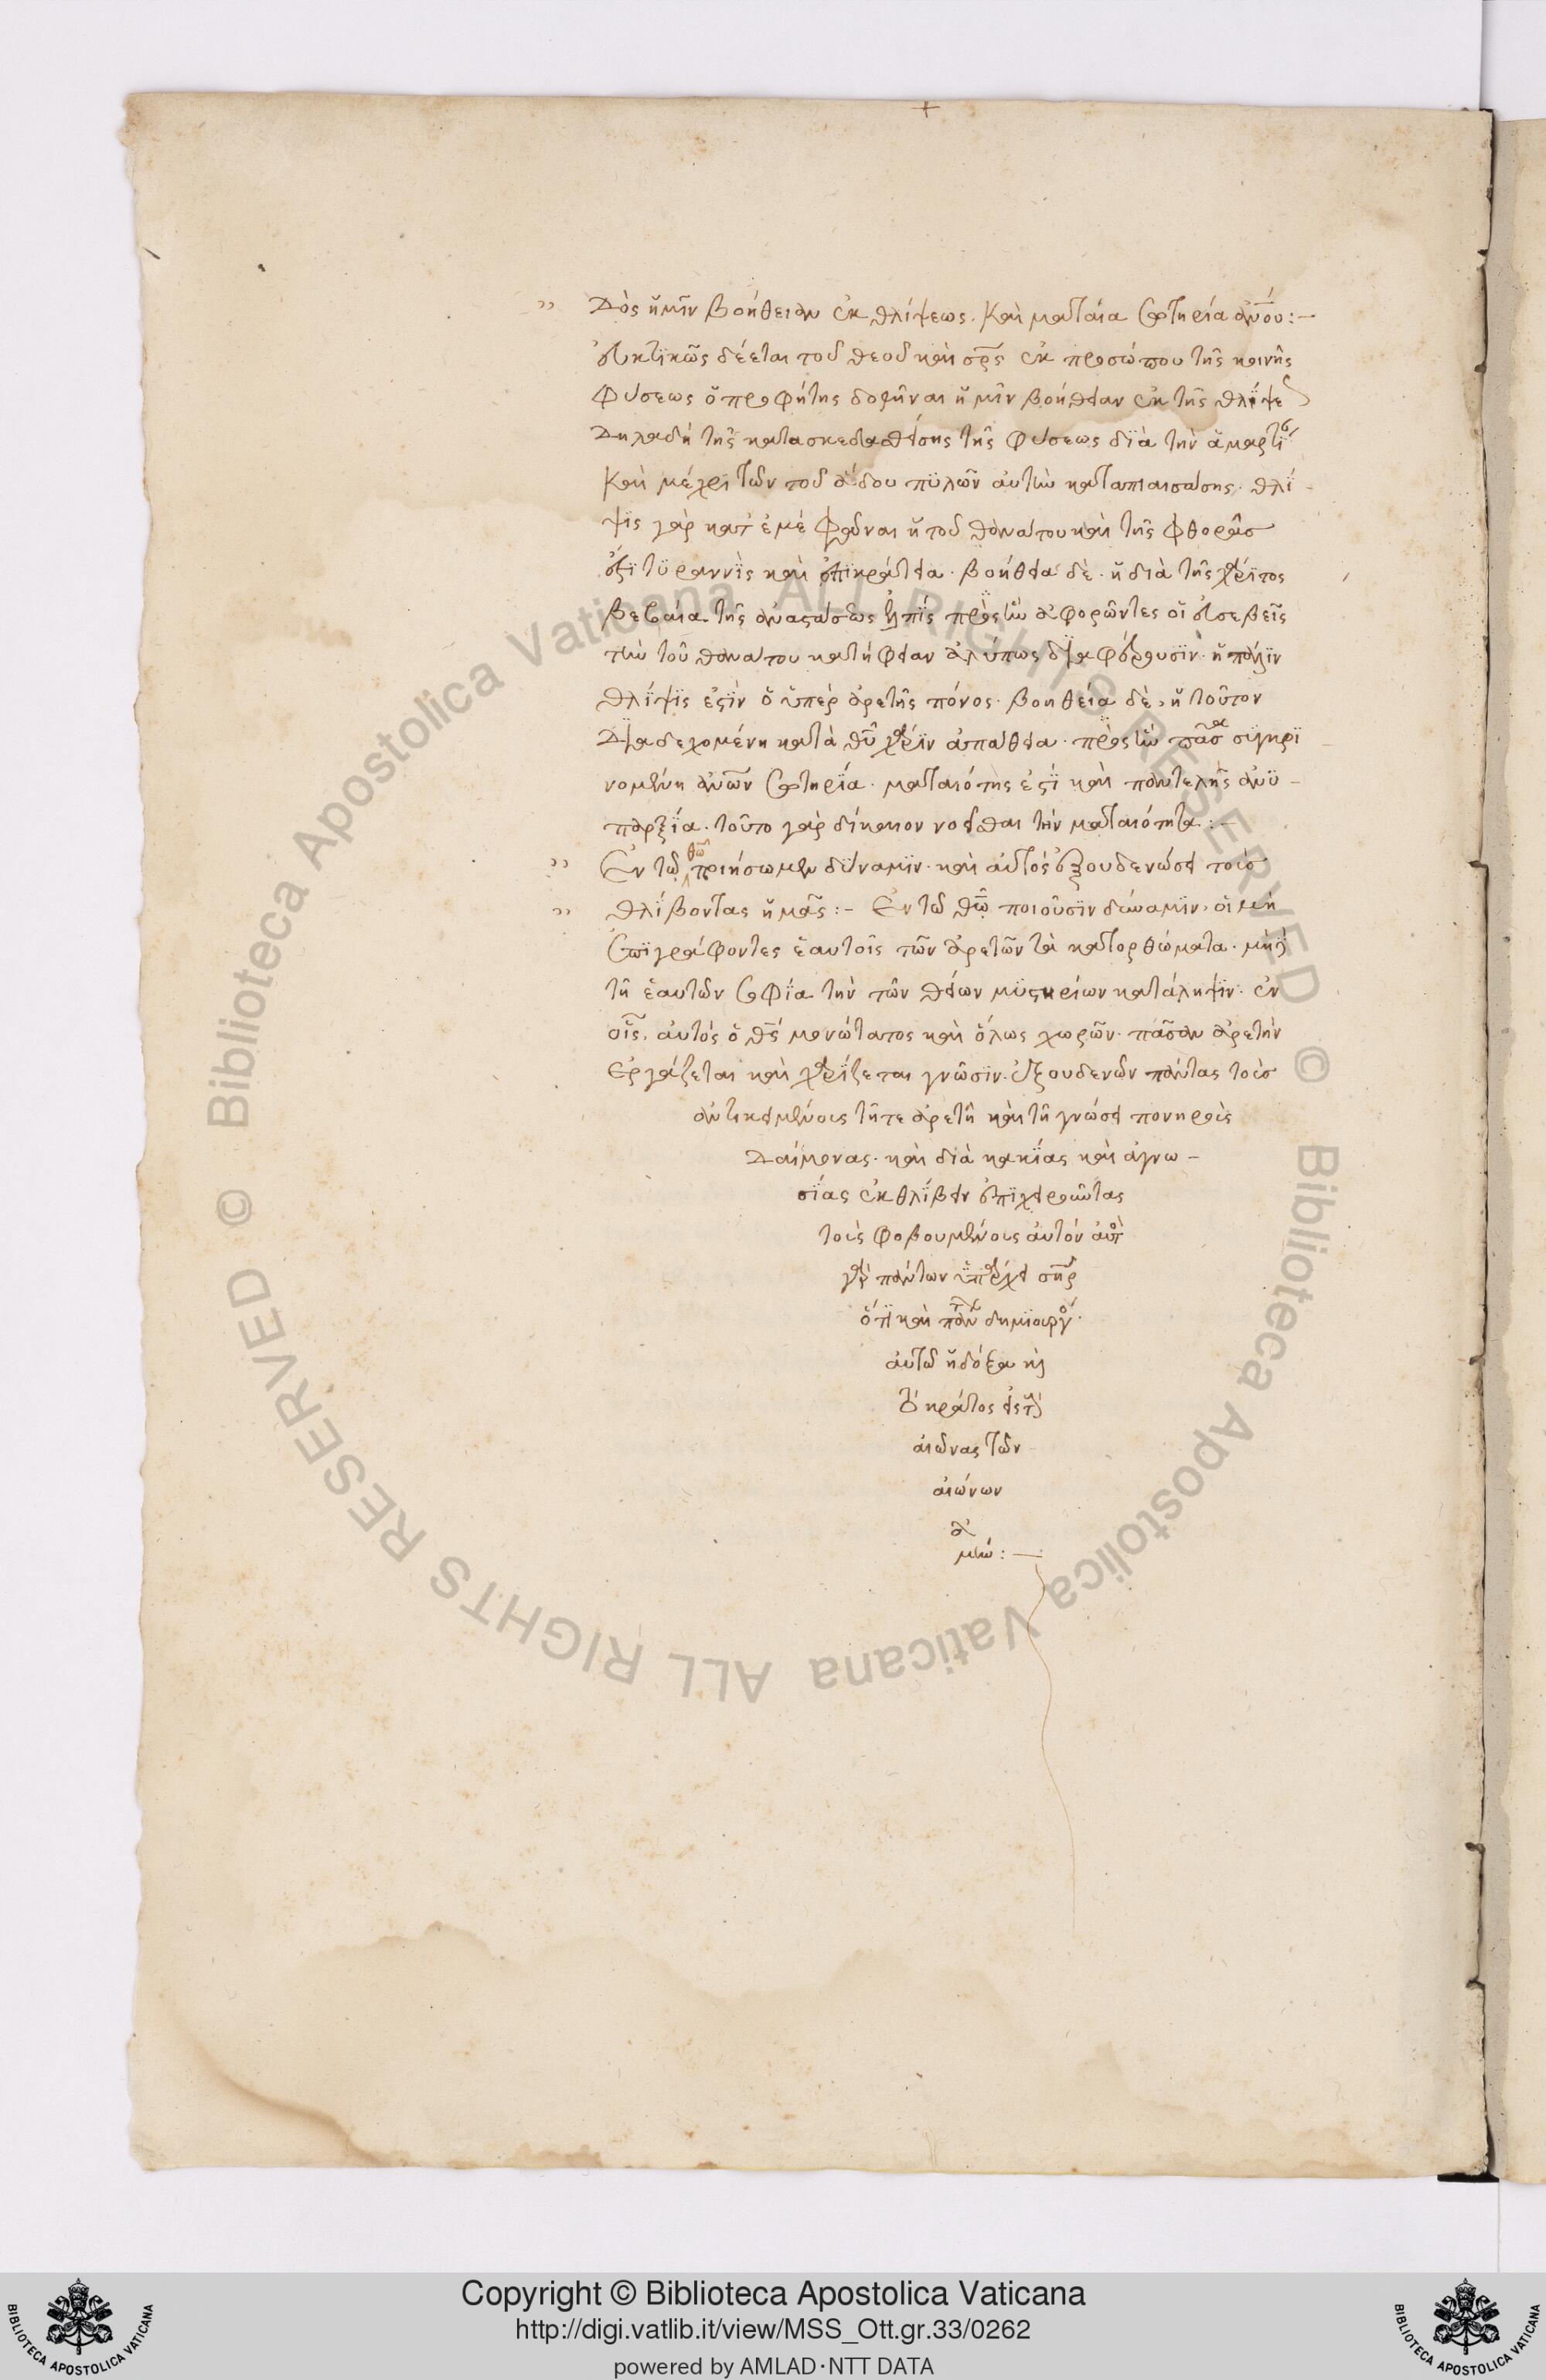 +
" Δὸς ἡμῖν βοήθειαν ἐκ θλίψεως. καὶ ματαία σωτηρία ἀνου:-
εὐκτικῶς δέεται τοῦ θεοῦ καὶ σρς ἐκ προσώπου τῆς κοινῆς
φύσεως ὁ προφήτης δοθῆναι ἡμῖν βοήθειαν ἐκ τῆς θλίψε
δηλαδὴ τῆς κατασκεδασθείσης τῆς φύσεως διὰ τὴν ἁμαρτί
καὶ μέχρι τῶν τοῦ ἅδου πυλῶν αὐτὴν
ψις γὰρ κατ' ἐμὲ φᾶναι ἡ τοῦ θανάτου καὶ τῆς φθορᾶς
ἐστὶ τυραννὶς καὶ ἐπικράτεια. βοήθεια δὲ. ἡ διὰ τῆς χάριτος
βεβαία τῆς ἀναστάσεως ἐλπίς πρὸς ἣν ἀφορῶντες οἱ εὐσεβεῖς
τὴν τοῦ θανάτου κατήφειαν ἀλύπως διαφέρουσιν. ἢ πάλιν
θλίψις ἐστὶν ὁ ὑπὲρ ἀρετῆς πόνος. βοηθεία δὲ, ἡ τοῦτον
διαδεχομένη κατὰ θυ χάριν ἀπάθεια. πρὸς ἣν πᾶσα συγκρι
νομένη ἀνων σωτηρία. ματαιότης ἐστὶ καὶ παντελὴς ἀνυ-
παρξία. τοῦτο γὰρ δίκαιον νοεῖσθαι τὴν ματαιότητα:-
" Ἐν τῶ θω ποιήσωμεν δύναμιν. καὶ αὐτὸς ἐξουδενώσει τοὺς
" θλίβοντας ἡμᾶς:- Ἐν τῶ θω ποιοῦσιν δύναμιν, οἱ μὴ
ἐπιγράφοντες ἑαυτοῖς τῶν ἀρετῶν τὰ κατορθώματα. μηδὲ
τῆ ἑαυτῶν σοφία τὴν τῶν θείων μυστηρίων κατάληψιν. ἐν
οἷς, αὐτὸς ὁ θς μονώτατος καὶ ὅλως χωρῶν. πᾶσαν ἀρετὴν
ἐργάζεται καὶ χαρίζεται γνῶσιν. ἐξουδενῶν πάντας τοὺς
ἀντικειμένους τῆ τε ἀρετῆ καὶ τῆ γνώσει πονηροὺς
δαίμονας. καὶ διὰ κακίας καὶ ἀγνω-
σίας ἐκθλίβειν ἐπιχειροῦντας
τοὺς φοβουμένους αὐτόν αὐτὸ
γὰρ πάντων ὑπάρχει σηρ
ὅτι καὶ πάντων δημιουργό.
αὐτῶ ἡ δόξα καὶ
τὸ κράτος εἰς τοὺς
αἰῶνας τῶν
αἰώνων
ἀ
μήν:-
Biblioteca Apostolica Vaticana ALL RIGHTS RESERVED ©
Biblioteca Apostolica Vaticana ALL RIGHTS RESERVED ©
Copyright © Biblioteca Apostolica Vaticana
http://digi.vatlib.it/view/MSS_Ott.gr.33/0262
powered by AMLAD·NTT DATA
BIBLIOTECA APOSTOLICA VATICANA
BIBLIOTECA APOSTOLICA VATICANA